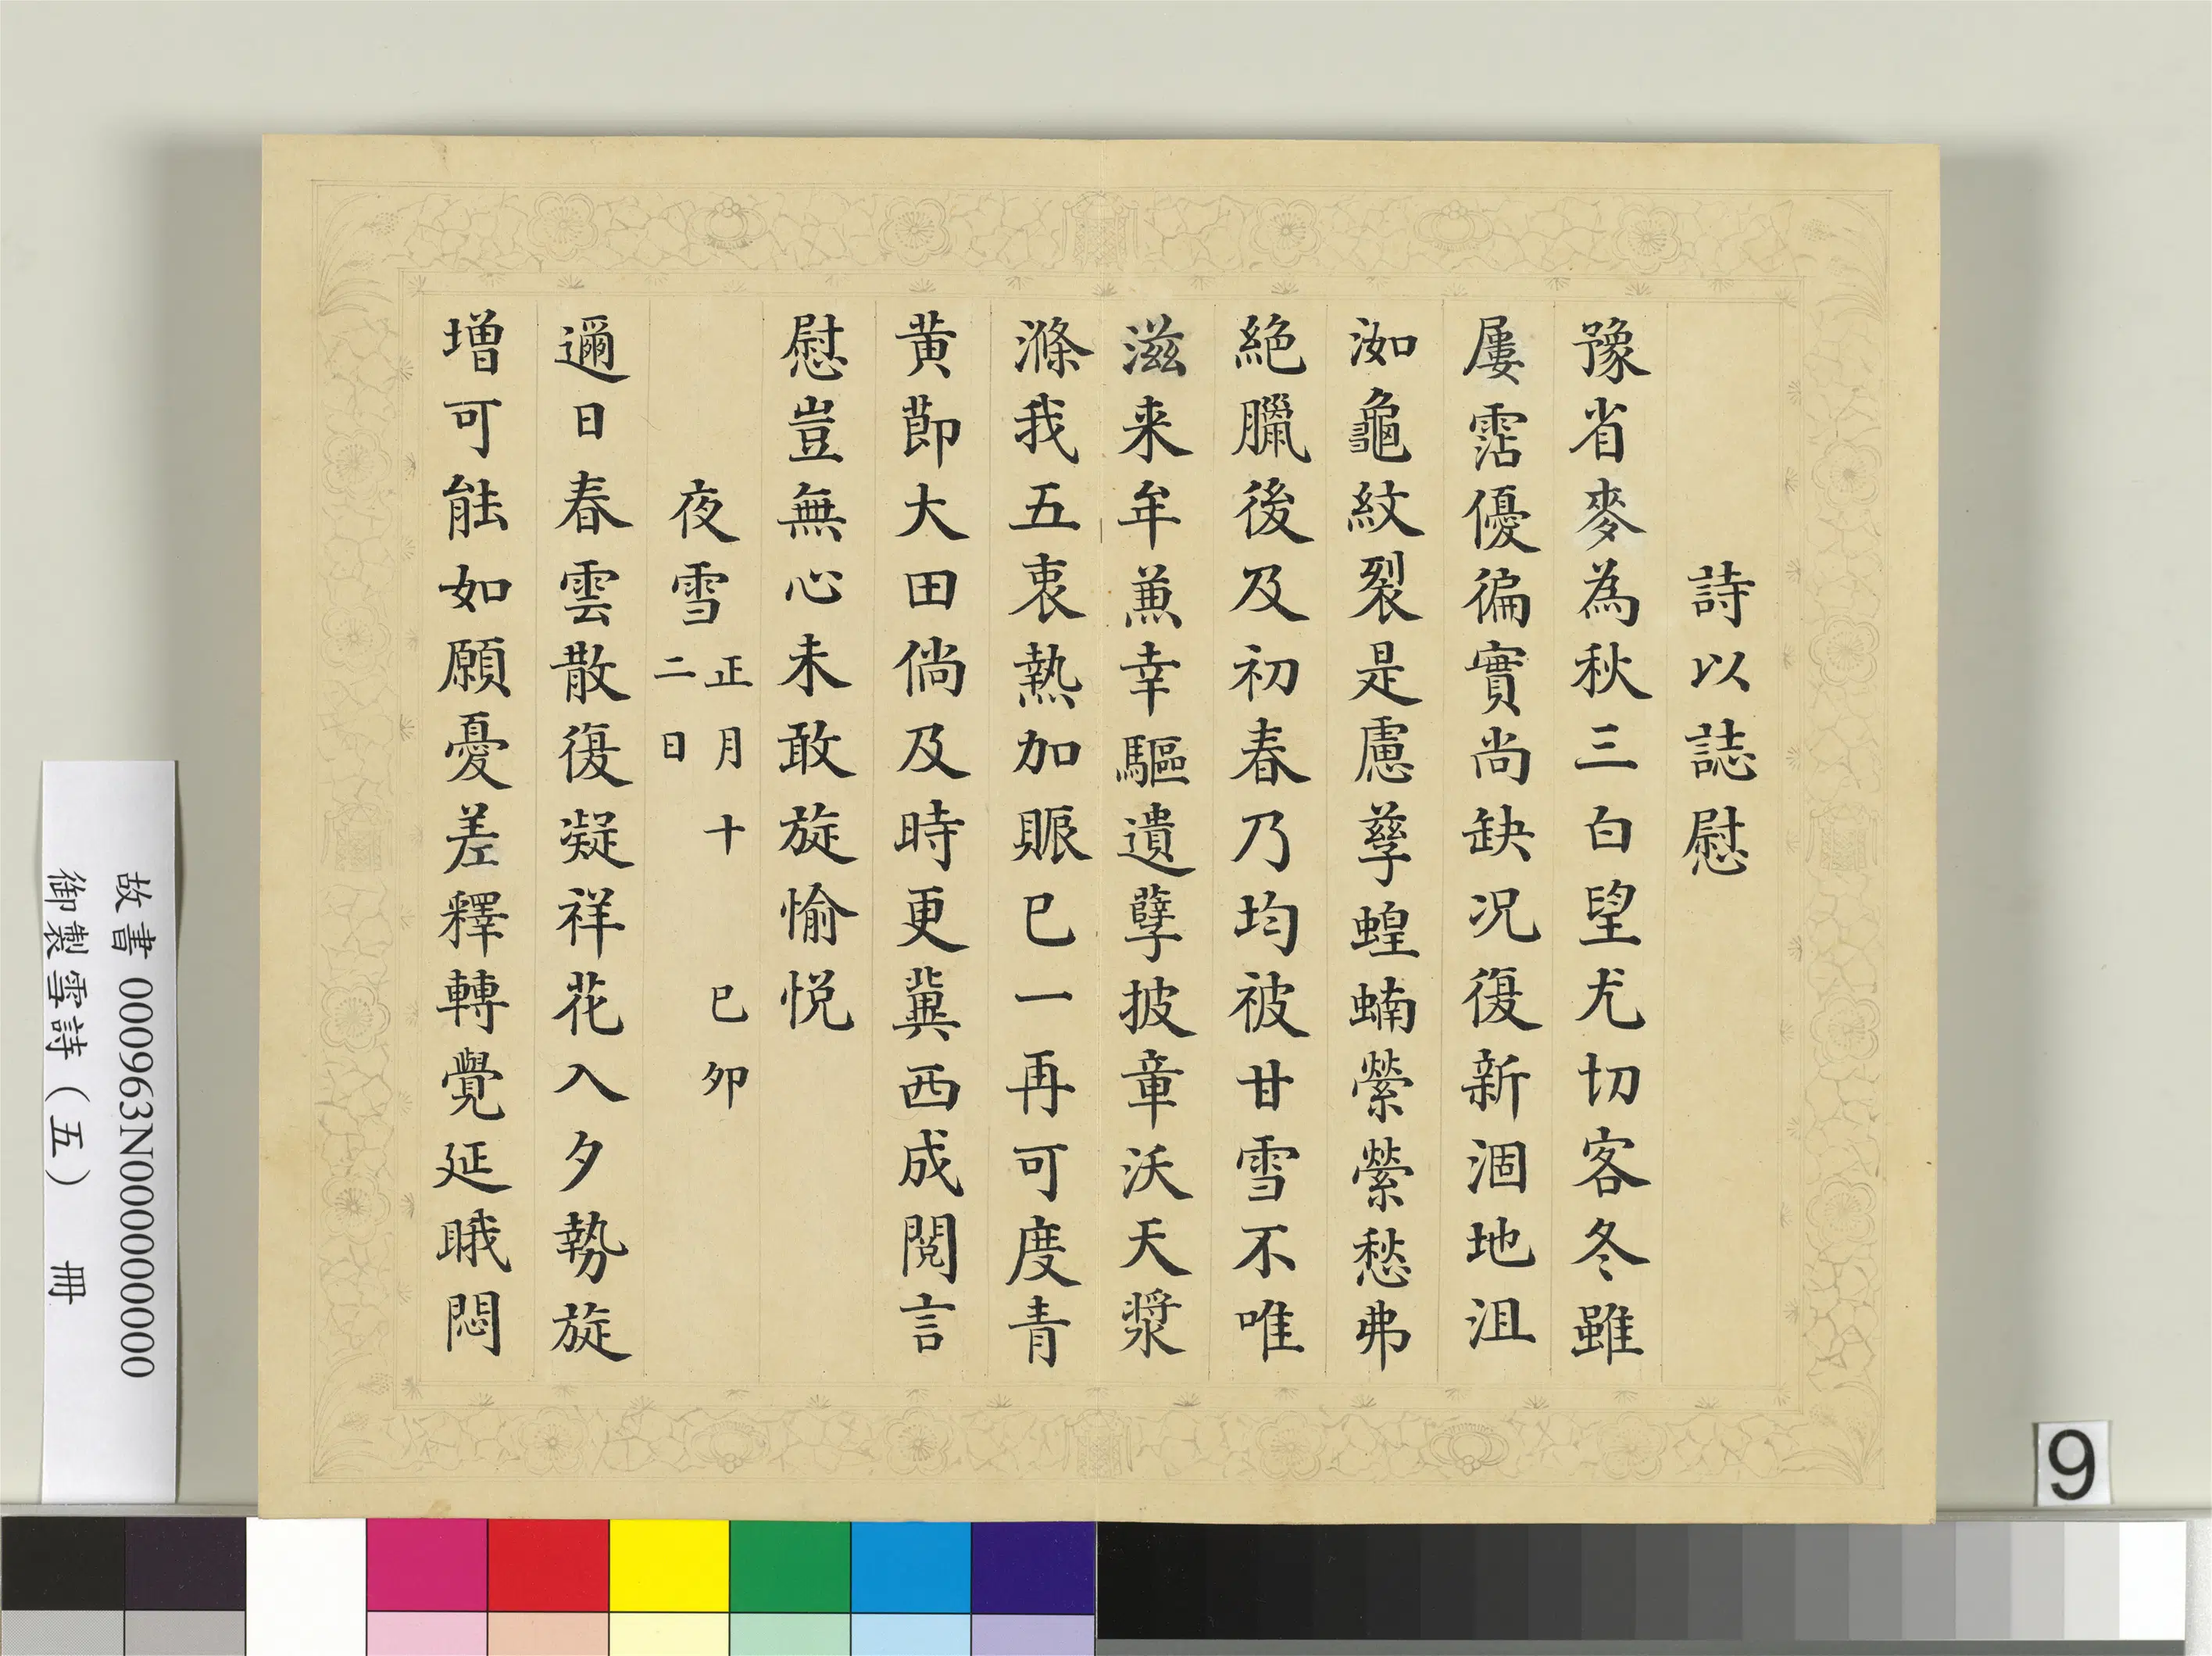 詩以誌慰
豫省麥為秋三白望尤切客冬雖
屢霑優徧實尚缺况復新涸地沮
洳龜紋裂是慮孳蝗蝻縈縈愁弗
絶臘後及初春乃均被甘雪不唯
滋来牟蒹幸驅遺孽披章沃天漿
滌我五衷熱加賑已一再可度青
黄節大田倘及時更冀西成閱言
慰豈無心未敢旋愉悦
夜雪正月十二日 己卯
邇日春雲散復凝祥花入夕勢旋
增可能如願憂差釋轉覺延睋悶
故書 000963N000000000
御製雪詩（五） 冊
9